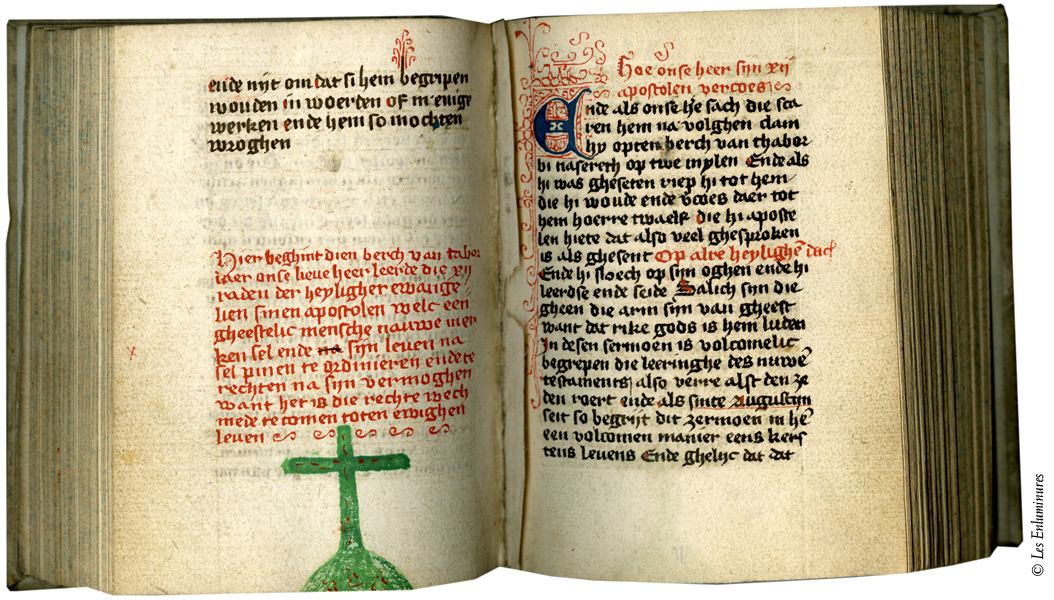 ende nyt om dat si hem begripen
wouden in woerden of in enige
werken ende hem so mochten
wroghen
Hier beghint dien berch van tabor
daer onse lieve heer leerde die xij
raden der heyligher ewange
lien sinen apostolen welc een
gheestelic mensche nauwe mer
ken sel ende na sijn leven na
sel pinen te ordinieren ende te
rechten na sijn vermoghen
want het is die rechte wech
mede te comen toten ewighen
leven
Hoe onse heer sijn xij
apostolen vercoes
Ende als onse he sach die sca
ren hem na volghen clam
hy opten berch van thabor
bi nasereth op twe mylen Ende als
hi was gheseten riep hi tot hem
die hi woude ende v̄coes daer tot
hem hoerre twaelf die hi aposte
len hiete dat also veel ghesproken
is als ghesent Op alre heylighē dach
Ende hi sloech op sijn oghen ende hi
leerdse ende seide Salich sijn die
gheen die arm sijn van gheest
want dat rike gods is hem luden
In desen sermoen is volcomelic
begrepen die leeringhe des nuwē
testaments also verre alst den ze
den roert ende als sinte Augustijn
seit so begrijt dit zermoen in hē
een volcomen manier eens kers
tens levens Ende ghelijc dat dat
© Les Enluminures